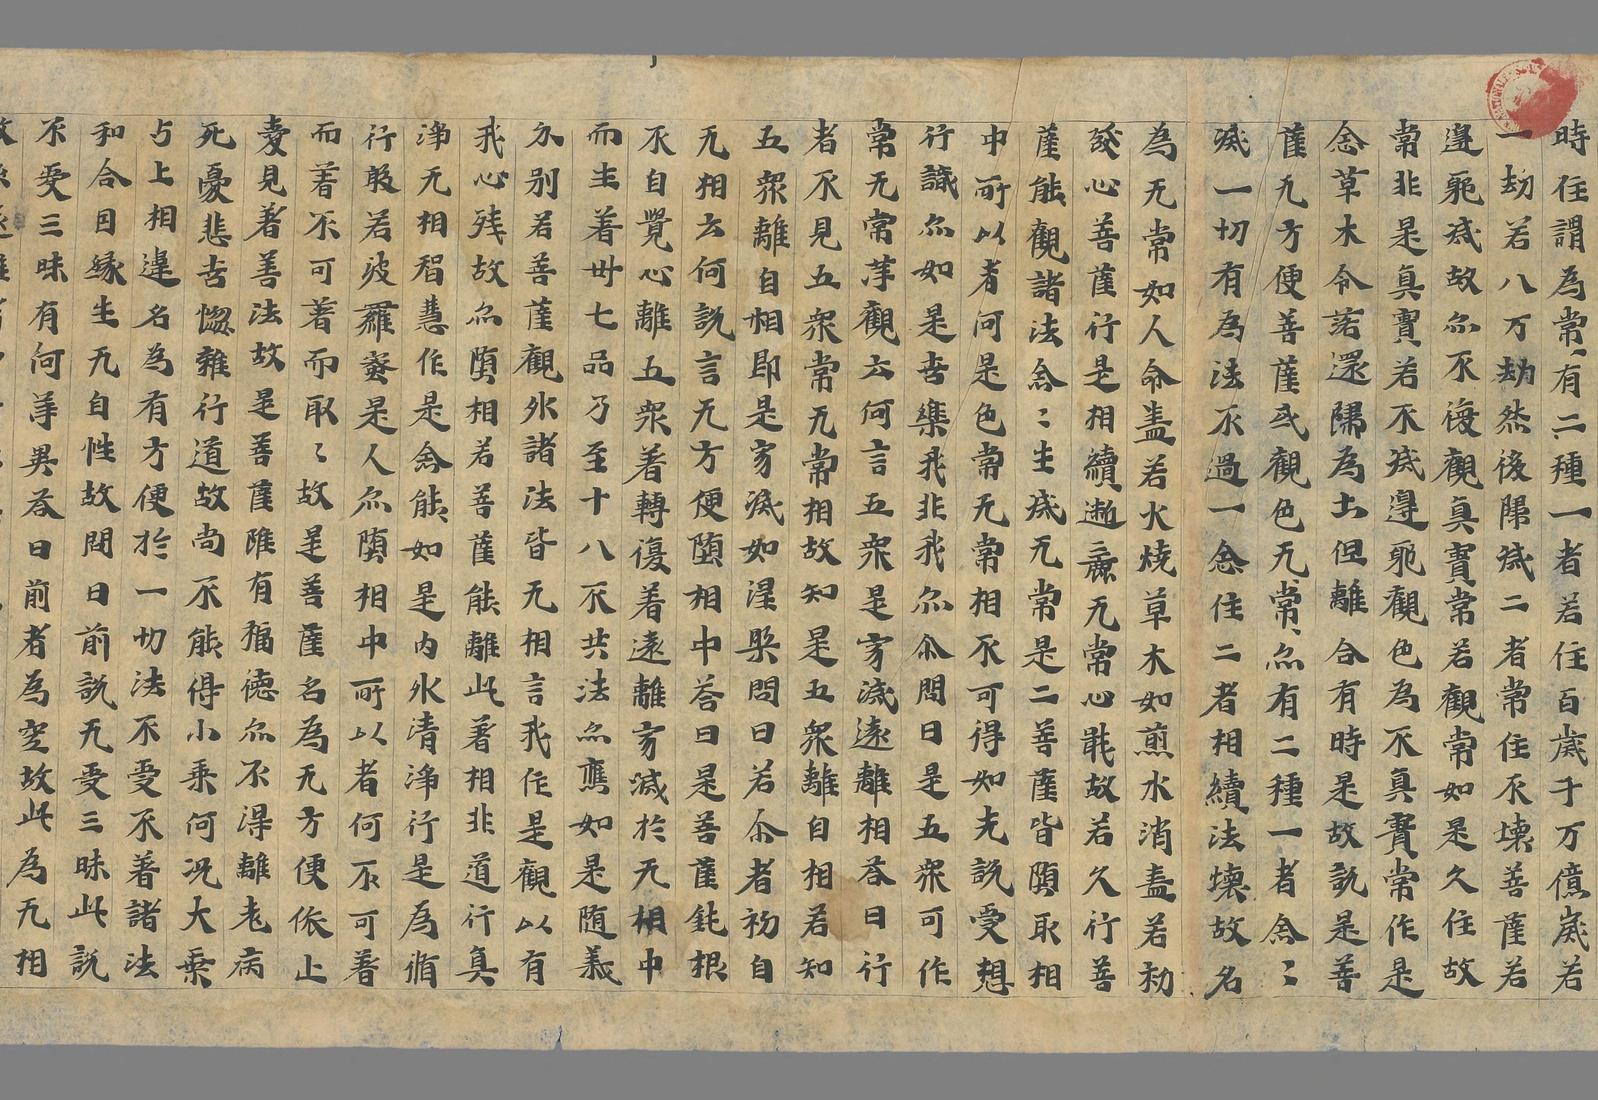 時住謂為常有二種一者若住百歲千万億歲若
一劫若八万劫然後歸滅二者常住不壞菩薩若
邊耶滅故尓不復觀真實常若觀常如是久住故
常非是真實若不滅邊耶觀色為不真實常作是
念草木令落還歸為土但離合有時是故說是菩
薩无方便菩薩或觀色无常尓有二種一者念〻
滅一切有為法不過一念住二者相續法壞故名
為无常如人命盡若火燒草木如煎水消盡若初
發心菩薩行是相續遞麁无常心猒故若久行善
薩能觀諸法念〻生滅无常是二菩薩皆墮取相
中所以者何是色常无常相不可得如先說受想
行識尓如是苦樂我非我尓尒問曰是五眾可作
常无常等觀云何言五眾是寂滅遠離相荅曰行
者不見五眾常无常相故知是五眾離自相若知
五眾離自相即是寂滅如涅槃問曰若尒者初自
无相云何說言无方便墮相中荅曰是菩薩鈍根
不自覺心離五眾著轉復著遠離寂滅於无相中
而生著卅七品乃至十八不共法尓應如是随義
分別若菩薩觀外諸法皆无相言我作是觀以有
我心残故尓墮相若菩薩能離此著相非道行真
淨无相智慧作是念能如是内外清淨行是為脩
行般若波羅蜜是人尓墮相中所以者何不可著
而著不可著而取〻故是菩薩名為无方便依止
愛見著善法故是菩薩雖有福德尓不得離老病
死憂悲苦惱雜行道故尚不能得小乘何况大乘
与上相違名為有方便於一切法不受不著諸法
和合因緣生无自性故問曰前說无受三昧此說
不受三昧有何等異荅曰前者為空故此為无相